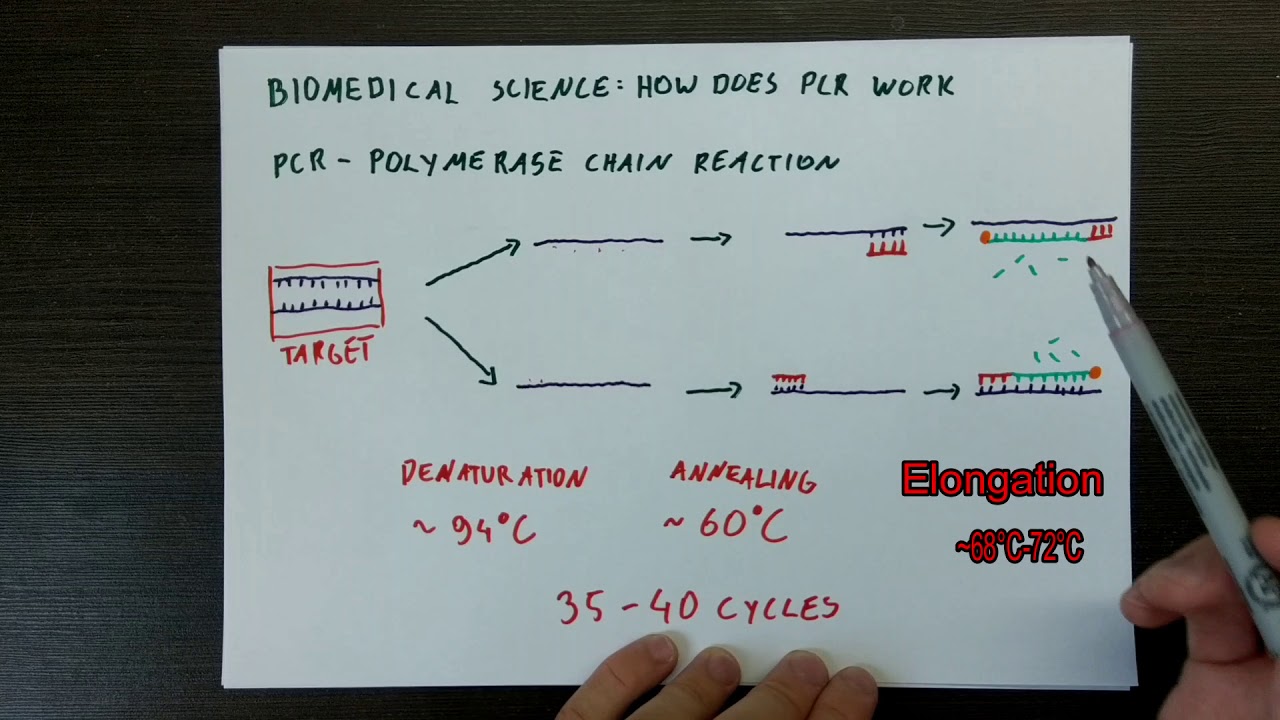 BIOMEDICAL SCIENCE: HOW DOES PCR WORK
PCR - POLYMERASE CHAIN REACTION
TARGET
DENATURATION
~ 94°C
ANNEALING
~ 60°C
Elongation
~68°C-72°C
35 - 40 CYCLES